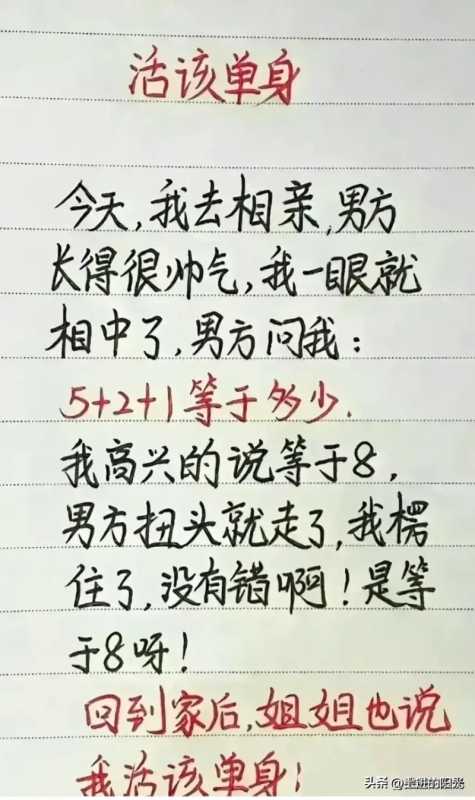 活该单身
今天,我去相亲,男方
长得很帅气,我一眼就
相中了,男方问我:
5+2+1等于多少.
我高兴的说等于8,
男方扭头就走了,我楞
住了,没有错啊!是等
于8呀!
回到家后,姐姐也说
我活该单身!
头条 @上进的阳光